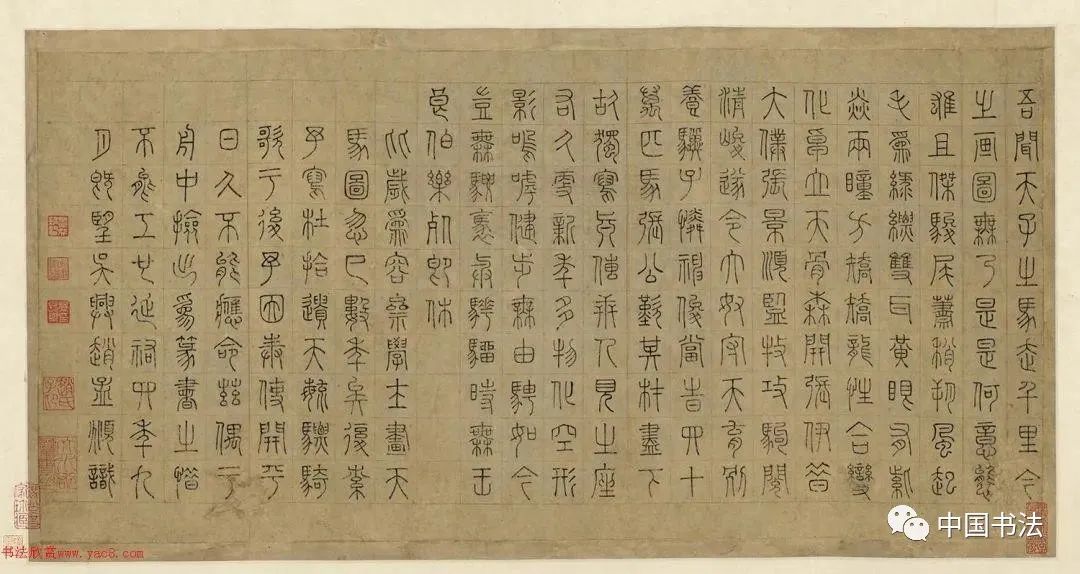 吾聞天子之馬走千里今
之画圖無乃是是何意態
雄且傑駿尾蕭梢朔風起
毛為綠縹雙耳黃眼有紫
焱兩瞳方矯矯龍性合變
化卓立天骨森開張伊昔
大僕張景順監牧攻駒閱
清峻遂令大奴字天育別
養驥子憐神俊當昔四十
萬匹馬張公歎其材盡下
故獨寫真傳世人見之座
右久更新年多物化空形
影嗚呼健步無由騁如今
豈無騕褭與驊騮時無王
良伯樂死即休
歲為容齋學士畫天
馬圖忽已數年矣後索
予寫杜拾遺天育驃騎
歌于後予因奉使開平
日久不能應命茲偶于
舟中撿出為篆書之惜
不能工也延祐四年九
月既望吳興趙孟頫識
中国书法
书法欣赏www.yac8.com